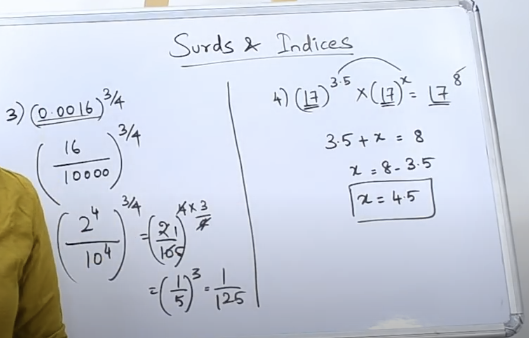 Surds & Indices
3) (0.0016)^3/4
(16/10000)^3/4
(2^4/10^4)^3/4 = (2 1/10 5)^4×3/4
= (1/5)^3 = 1/125
4) (17)^3.5 × (17)^x = 17^8
3.5 + x = 8
x = 8 - 3.5
x = 4.5